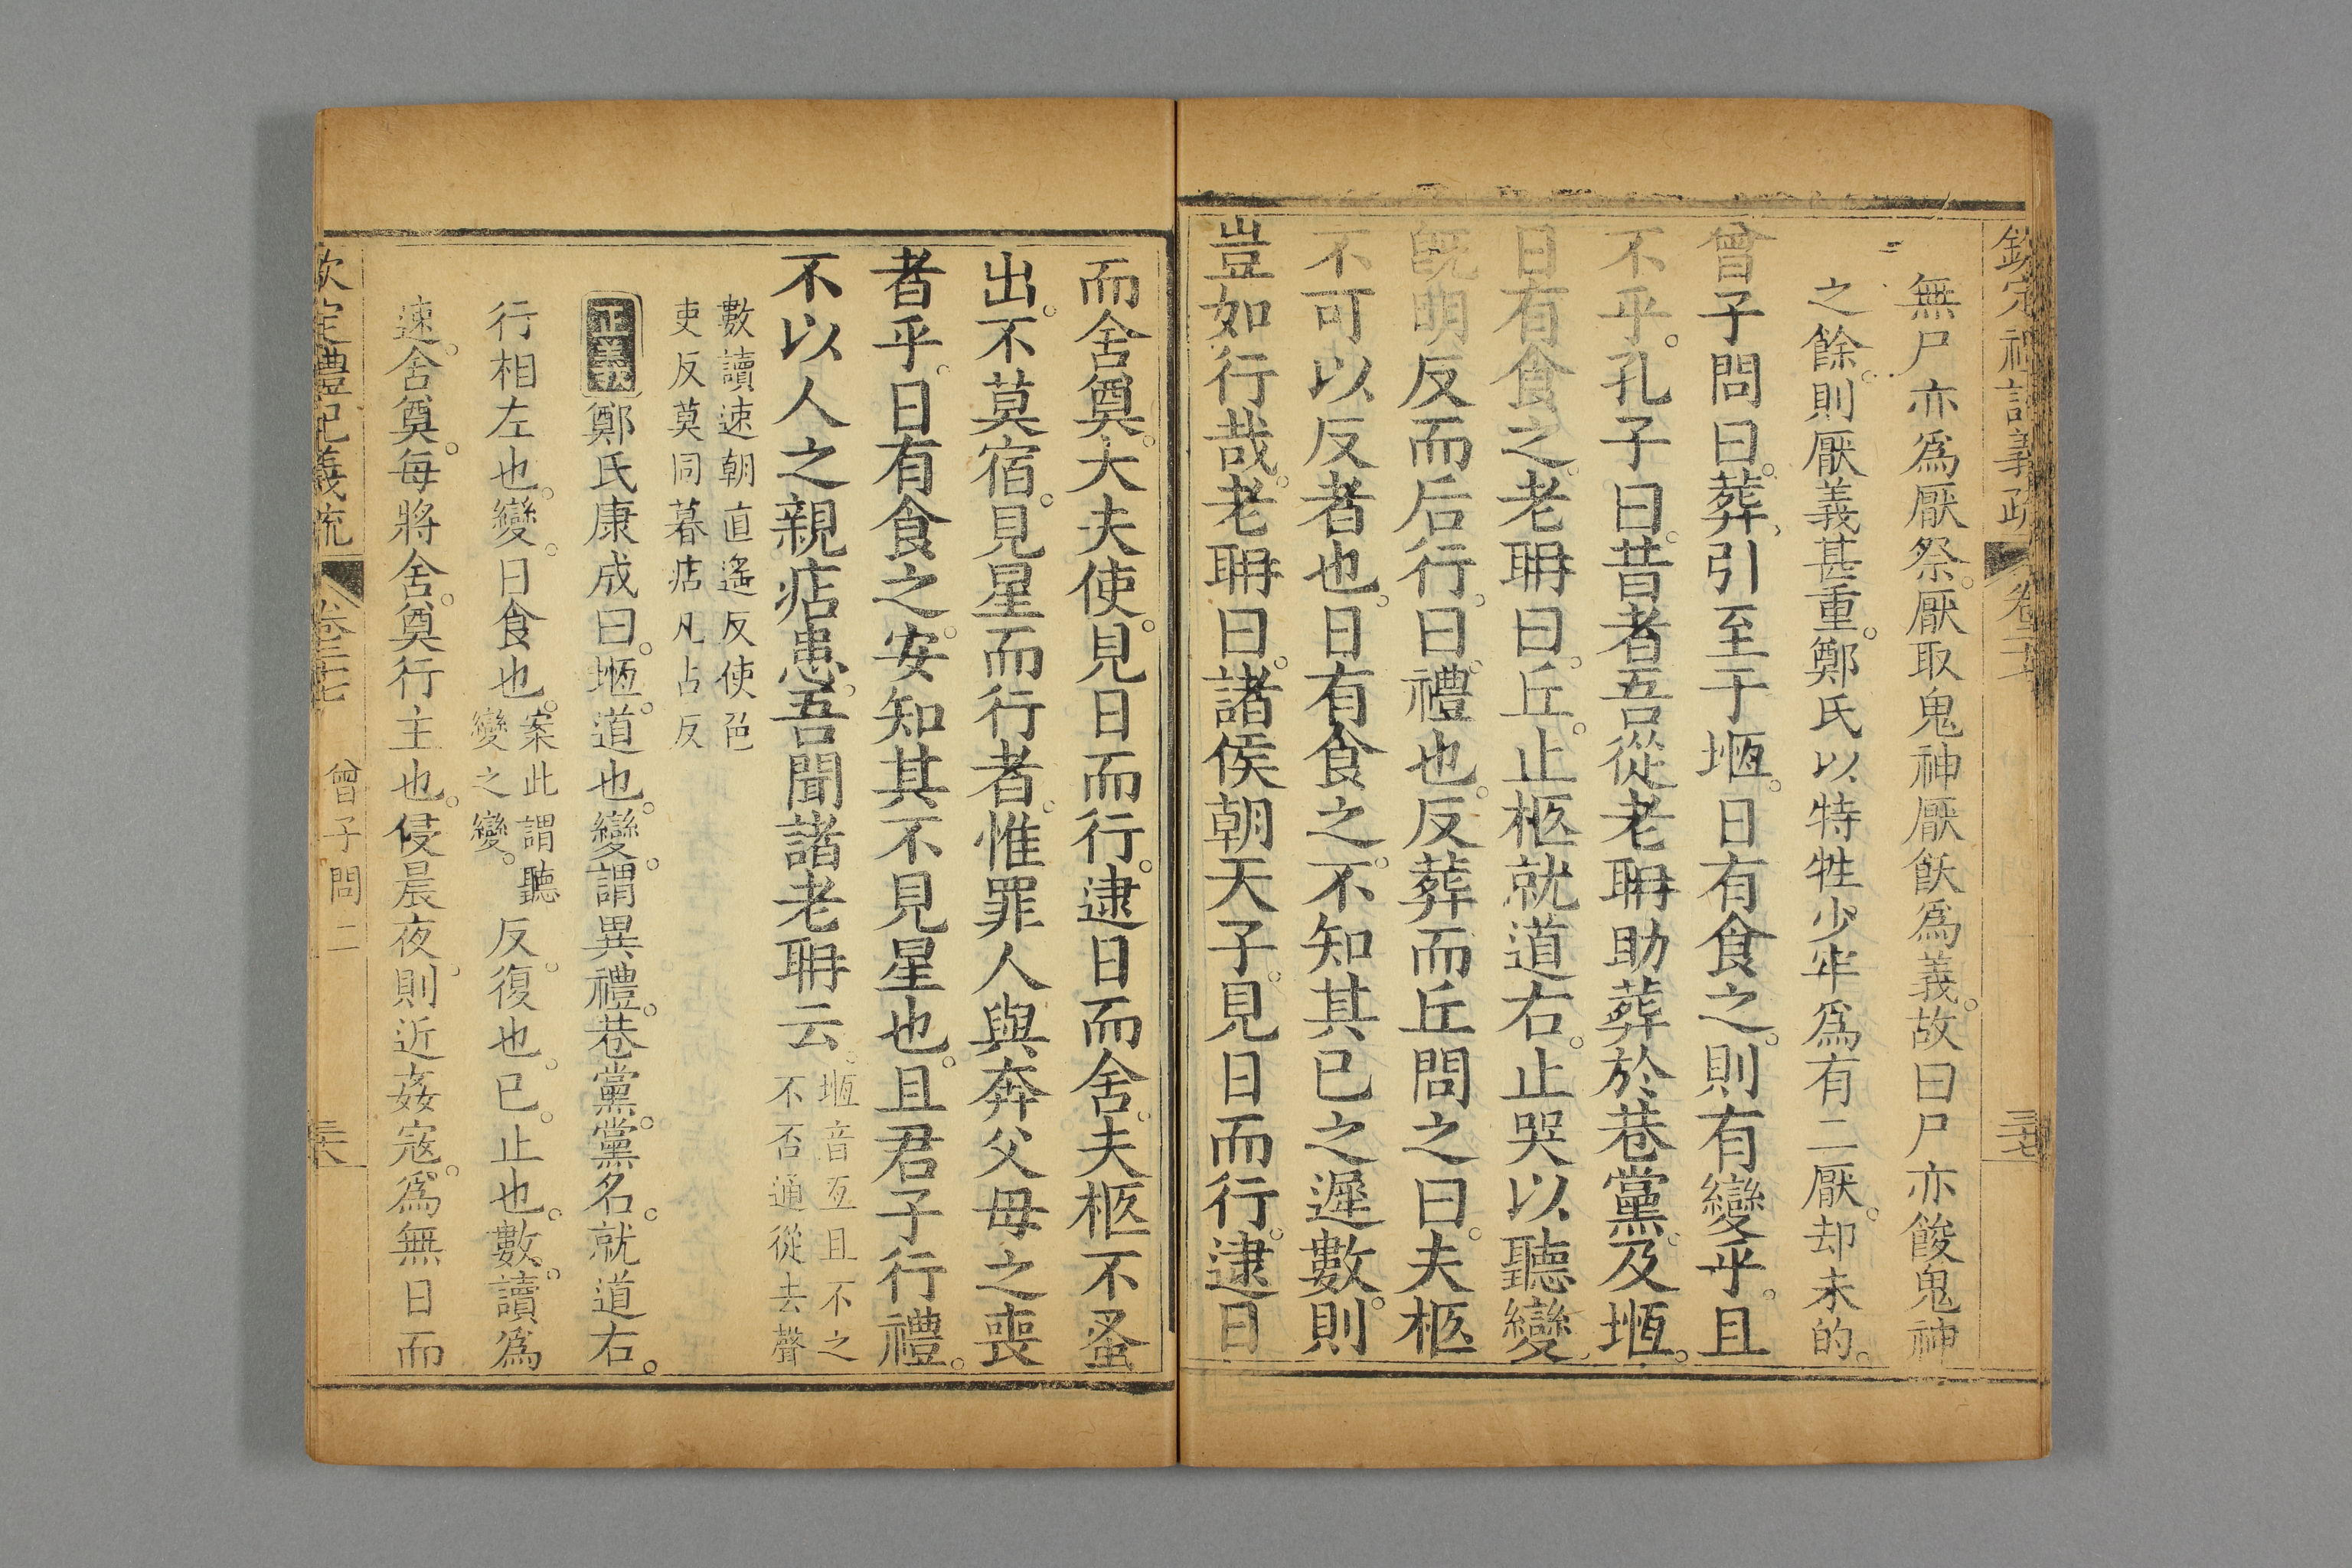 欽定禮記義疏 卷二十七 三七
無尸亦爲厭祭。厭取鬼神厭飫爲義。故曰尸亦餕鬼神
之餘。則厭義甚重。鄭氏以特牲少牢爲有二厭。却未的。
曾子問曰。葬引至于堩。日有食之。則有變乎。且
不乎。孔子曰。昔者吾從老聃助葬於巷黨。及堩。
日有食之。老聃曰。丘。止柩就道右。止哭以聽變。
旣明反而后行。曰。禮也。反葬而丘問之曰。夫柩
不可以反者也。日有食之。不知其已之遲數。則
豈如行哉。老聃曰。諸侯朝天子。見日而行。逮日
而舍奠。大夫使。見日而行。逮日而舍。夫柩不蚤
出。不莫宿。見星而行者。惟罪人與奔父母之喪
者乎。日有食之。安知其不見星也。且君子行禮。
不以人之親痁患。吾聞諸老聃云。堩音亙且不之
不否通從去聲
數讀速朝直遙反使色
吏反莫同暮痁凡占反
正義 鄭氏康成曰。堩。道也。變。謂異禮。巷黨。黨名。就道右。
行相左也。變。日食也。案此謂聽
變之變。反。復也。已。止也。數。讀爲
速。舍奠。每將舍。奠行主也。侵晨夜。則近姦寇。爲無日而
欽定禮記義疏 卷二十七 曾子問二 三六